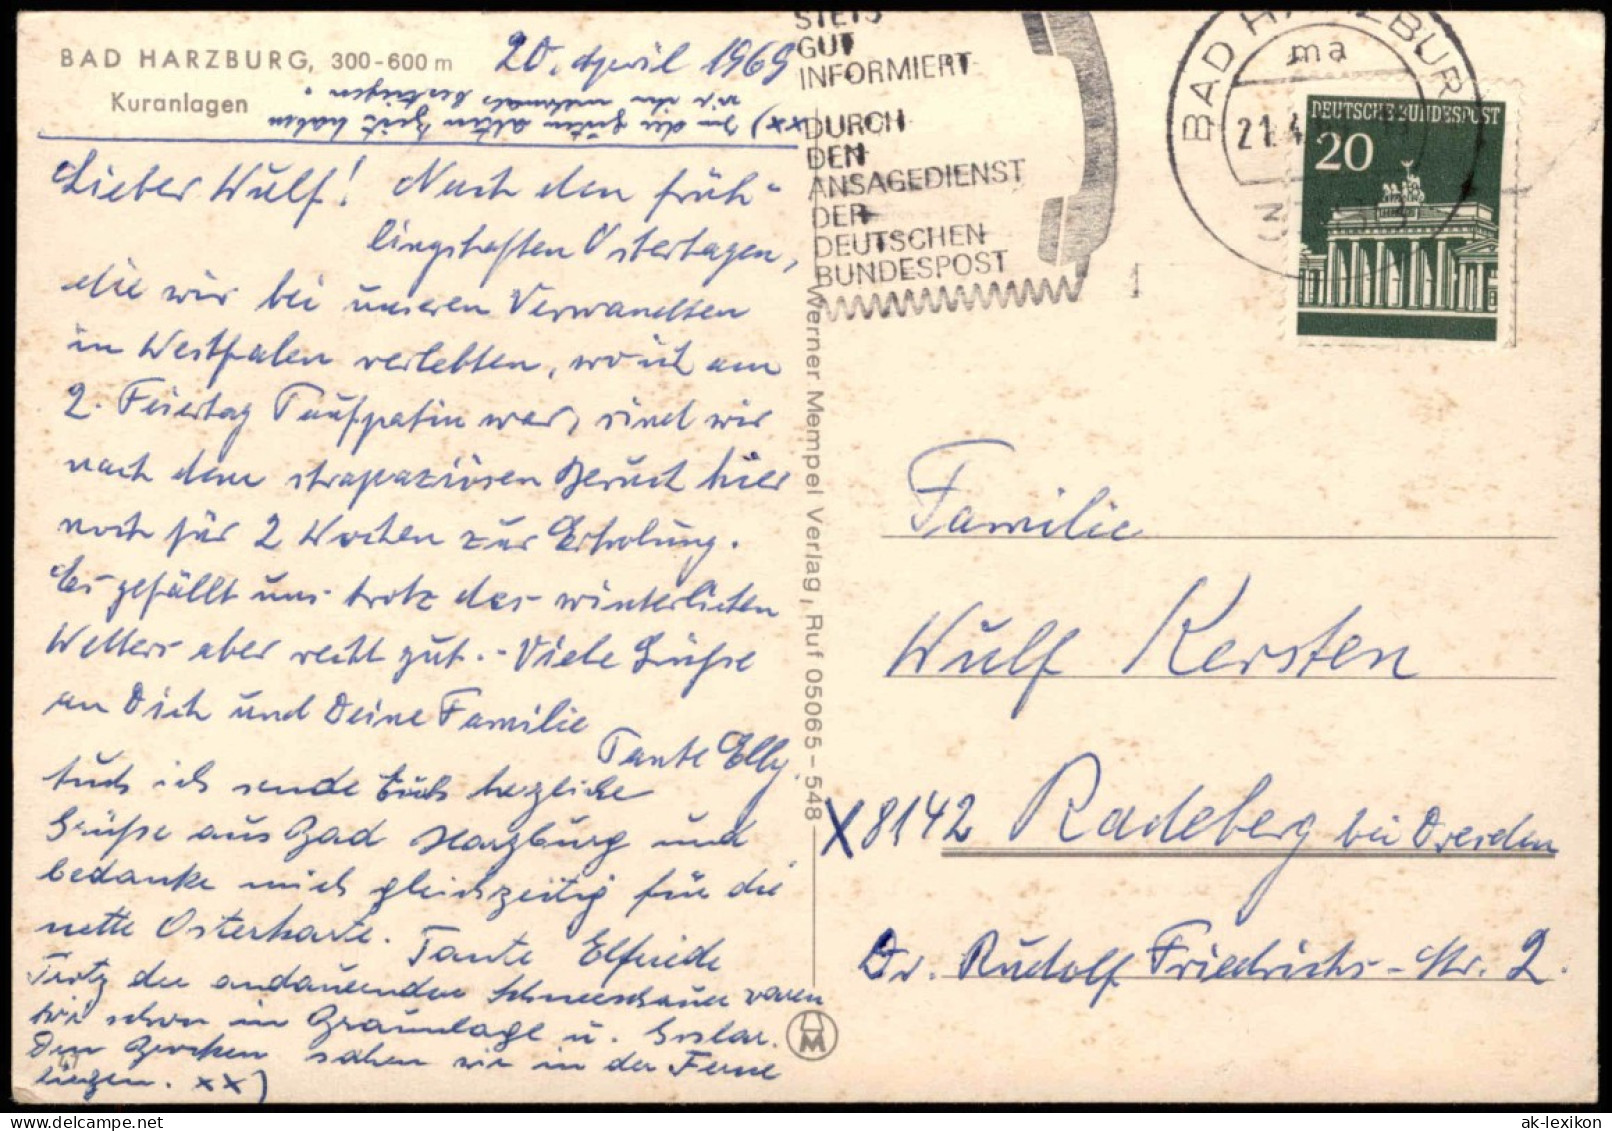 BAD HARZBURG, 300-600 m
Kuranlagen
20. April 1969
Lieber Wulf! Nach den früh-
lingshaften Ostertagen,
die wir bei unseren Verwandten
in Westfalen verlebten, wo ich am
2. Feiertag Taufpatin war, sind wir
nach dem strapaziösen Besuch hier
noch für 2 Wochen zur Erholung.
Es gefällt uns trotz des winterlichen
Wetters aber recht gut. - Viele Grüße
an Dich und Deine Familie
Tante Elly.
Auch ich sende Euch herzliche
Grüße aus Bad Harzburg und
bedanke mich gleichzeitig für die
nette Osterkarte. Tante Elfriede
Trotz der andauernden Schneeschauer waren
wir schon in Braunlage u. Goslar.
Den Brocken sahen wir in der Ferne
liegen. xx)
xx) In der guten alten Zeit haben
wir ihn mehrmals bestiegen.
Werner Mempel Verlag, Ruf 05065-548
STETS
GUT
INFORMIERT
DURCH
DEN
ANSAGEDIENST
DER
DEUTSCHEN
BUNDESPOST
BAD HARZBURG
ma
21.4
DEUTSCHE BUNDESPOST
20
Familie
Wulf Kersten
X8142 Radeberg bei Dresden
Dr. Rudolf Friedrichs-Str. 2.
delcampe.net
ak-lexikon